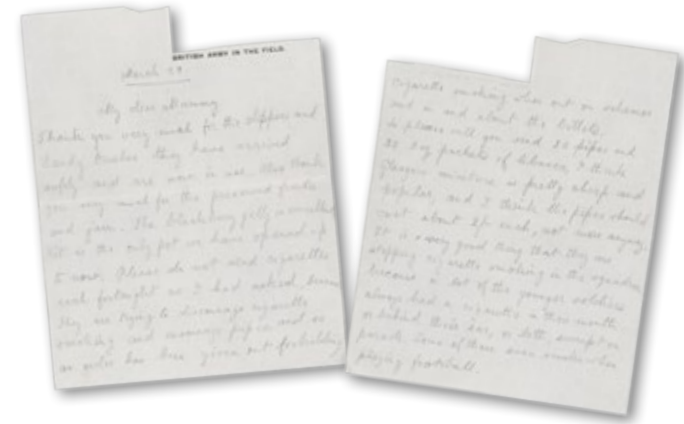 BRITISH ARMY IN THE FIELD.
March 29
My dear Mummy
Thanks you very much for the slippers and
tooth brushes they have arrived
safely and are now in use. Also thank
you very much for the preserved fruits
and jam. The blackberry jelly is excellent
it is the only pot we have opened up
to now. Please do not send cigarettes
each fortnight as I had asked because
they are trying to discourage cigarette
smoking and encourage pipes and so
an order has been given out forbidding
cigarette smoking when out on
and about the billets.
so please will you send 30 pipes and
30 big packets of tobacco, I think
Glasgow mixture is pretty cheap and
popular, and I think the pipes should
cost about 2/- each, not more anyway.
It is a very good thing that they are
stopping cigarette smoking in the squadron
because a lot of the younger soldiers
always had a cigarette in their mouth
or behind their ear, or both, except on
parade. Some of them even smoke when
playing football.